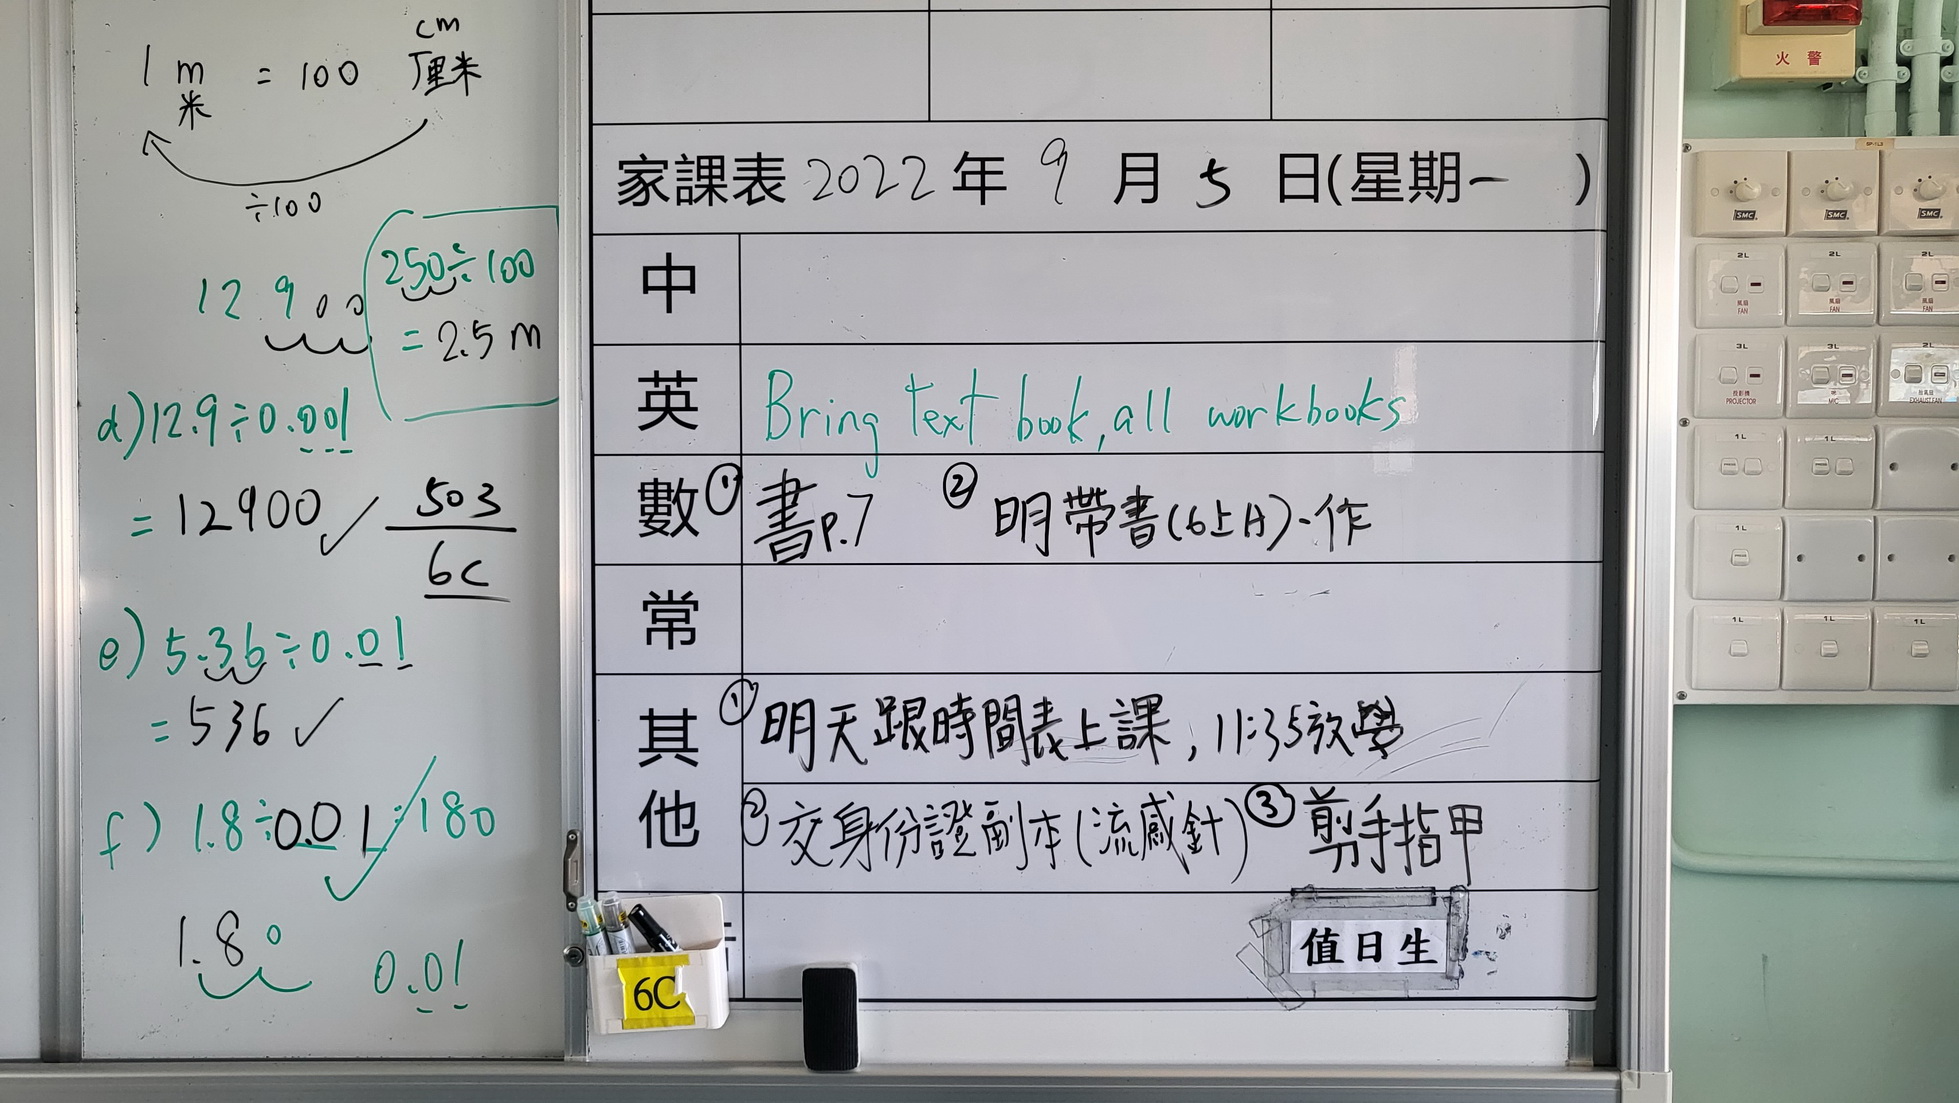 cm
1 m = 100 厘米
米
÷100
12.900
250÷100
= 2.5 m
d) 12.9÷0.001
= 12900 ✓
503
6C
e) 5.36÷0.01
= 536 ✓
f) 1.8÷0.01=180
1.80
0.01
家課表 2022 年 9 月 5 日(星期一 )
中
英 Bring text book, all workbooks
數 ① 書p.7 ② 明帶書(6上A)、作
常
其 ① 明天跟時間表上課, 11:35放學
他 ② 交身份證副本(流感針) ③ 剪手指甲
值日生
6C
火警
SMC SMC SMC
2L 2L 2L
風扇 風扇 風扇
FAN FAN FAN
3L 3L 2L
投影機 咪 抽氣扇
PROJECTOR MIC EXHAUST FAN
1L 1L
1L
1L 1L 1L